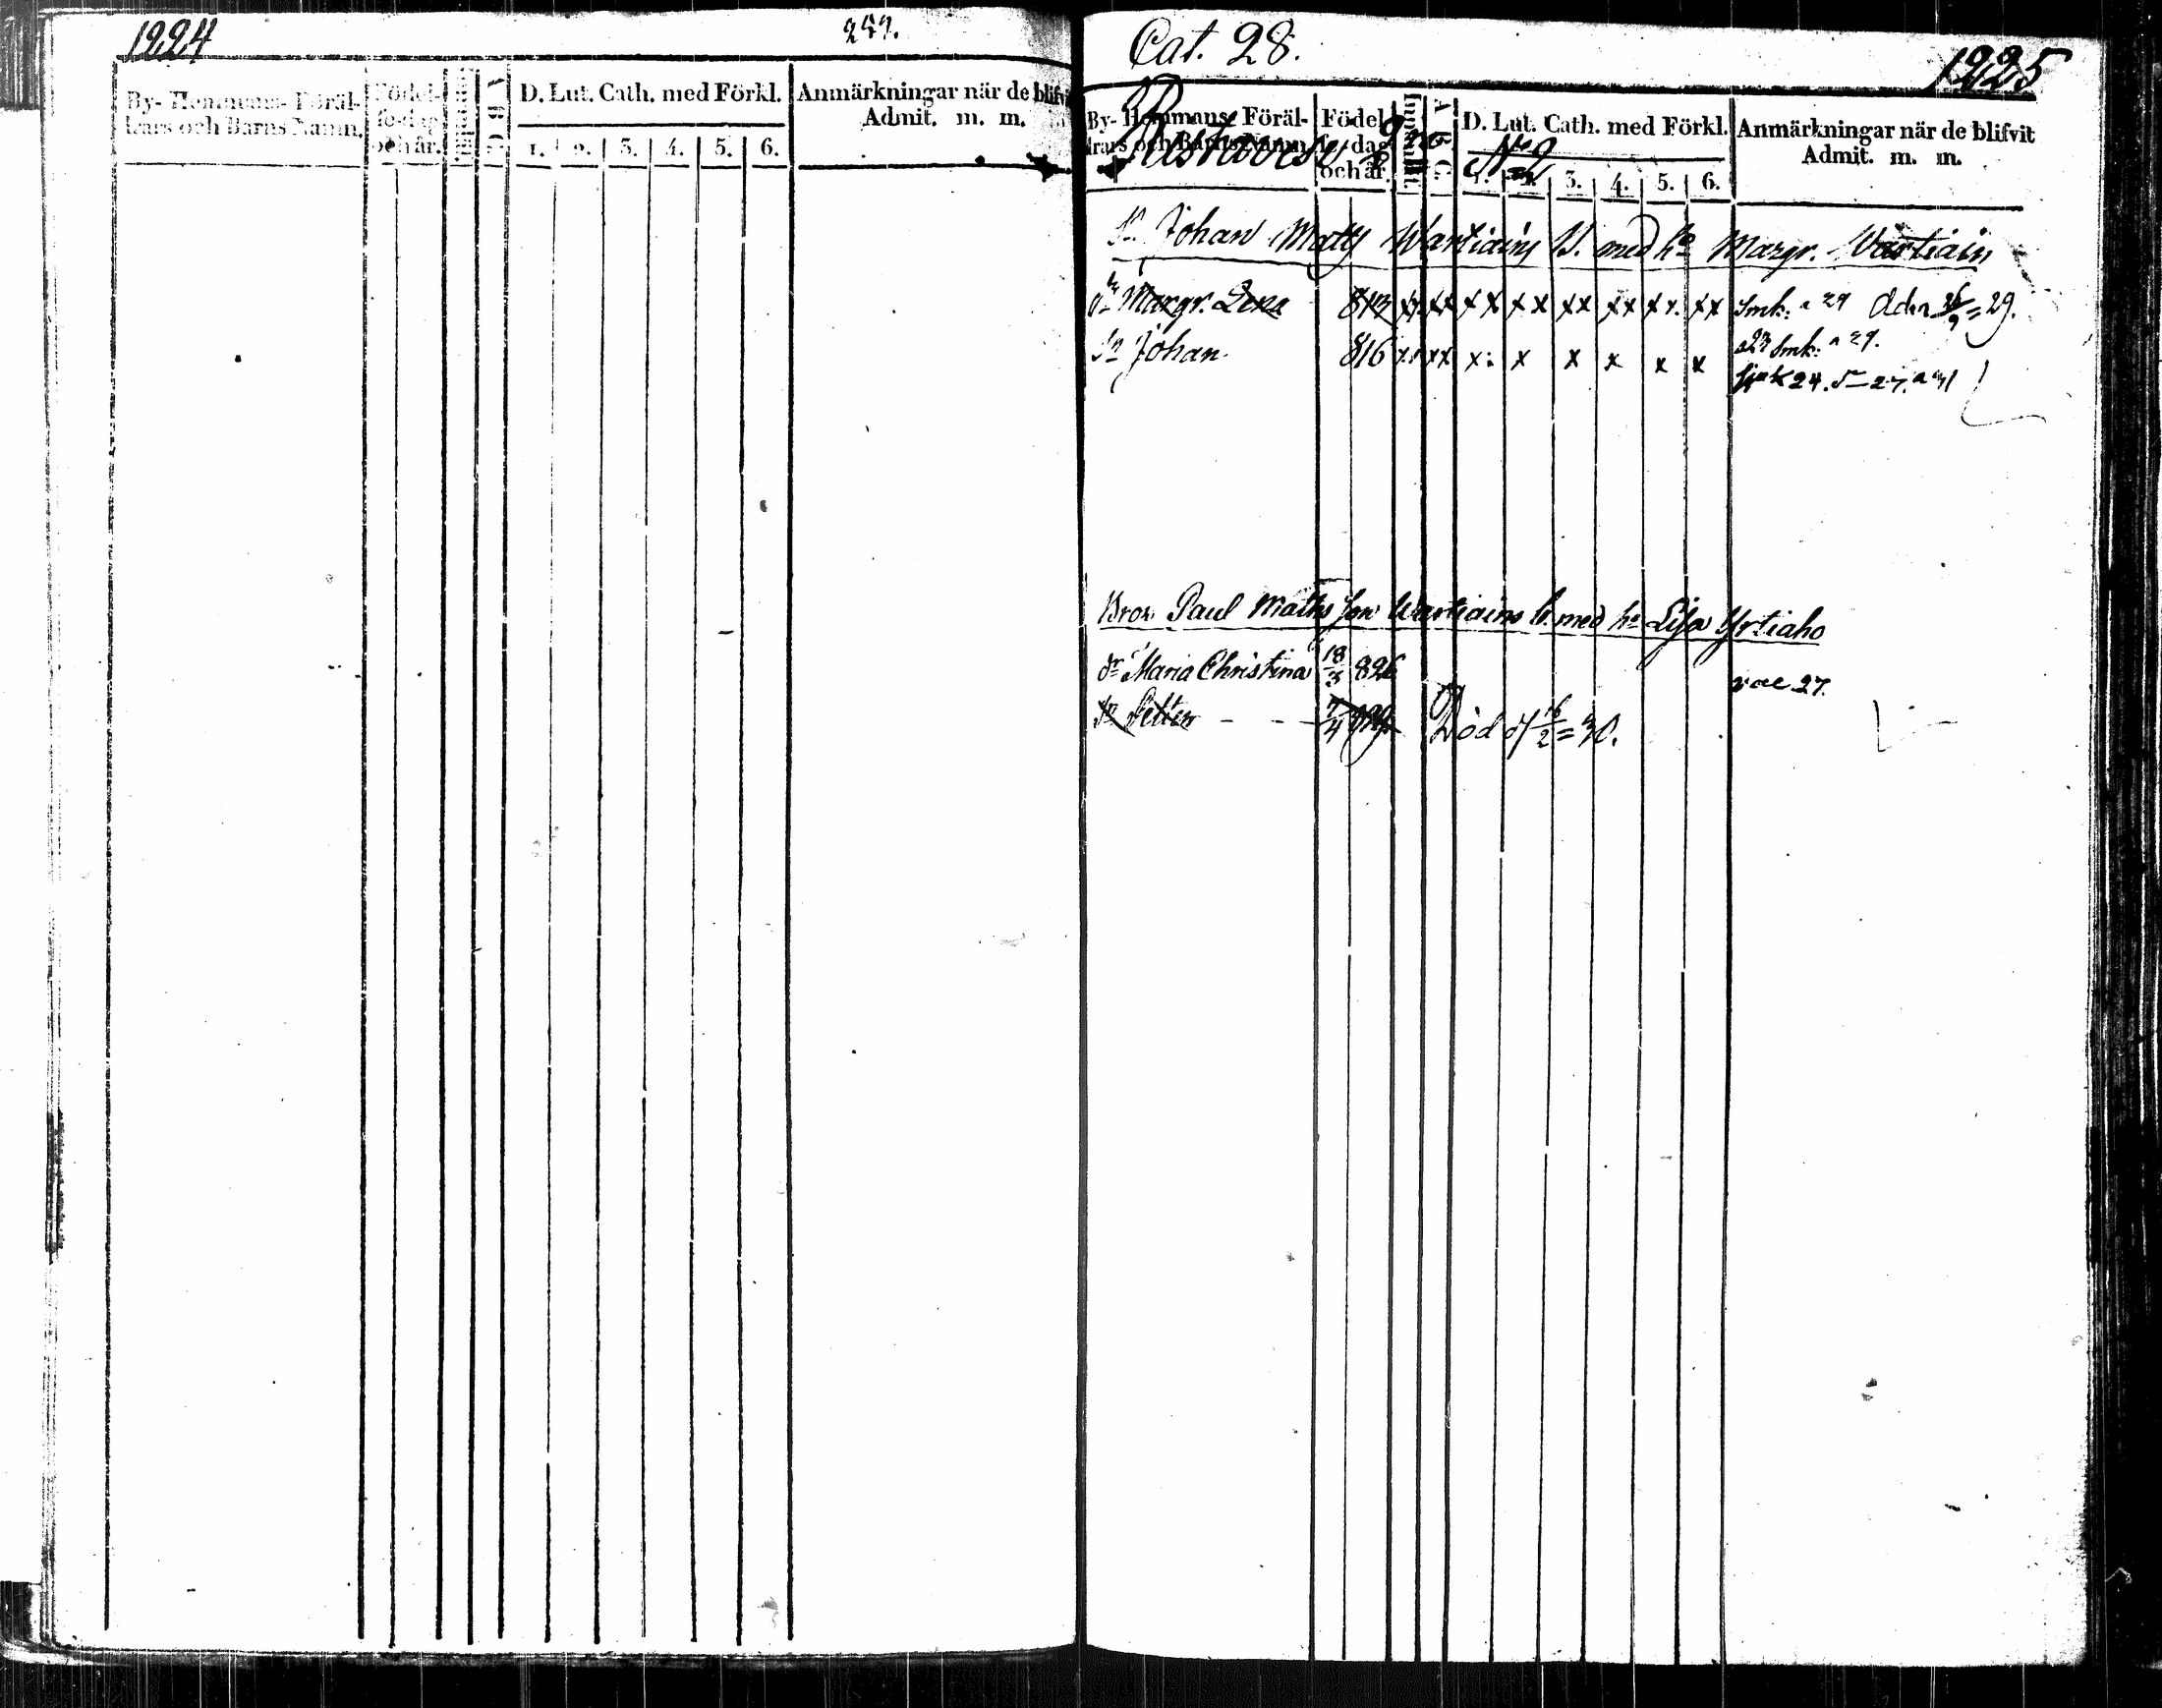 1224
247.
By- Hemmans- Föräl-
drars och Barns Namn.
Födel-
se-dag
och år.
A B C
D. Lut. Cath. med Förkl.
1. 2. 3. 4. 5. 6.
Anmärkningar när de blifvit
Admit. m. m.
Cat. 28.
1225
By- Hemmans- Föräl-
drars och Barns Namn.
Födel-
se-dag
och år.
A B C
D. Lut. Cath. med Förkl.
1. 2. 3. 4. 5. 6.
Anmärkningar när de blifvit
Admit. m. m.
No 2
Johan Matts Wartiains B. med ho Margr. Wartiain
dr Margr. Lena 813 x x xx x x x x xx xx x x. xx Smk: a 29 d. den 26/9 = 29.
Sn Johan 816 x x xx x: x x x x x 23 Smk: a 29.
24. 27. a 31
Bror Paul Maths Son Wartiains b. med ho Lisa Yrtiaho
dr Maria Christina 18/3 826 vac 27.
Sn Petter - - - 7/4 829 Död d 16/2 = 30.